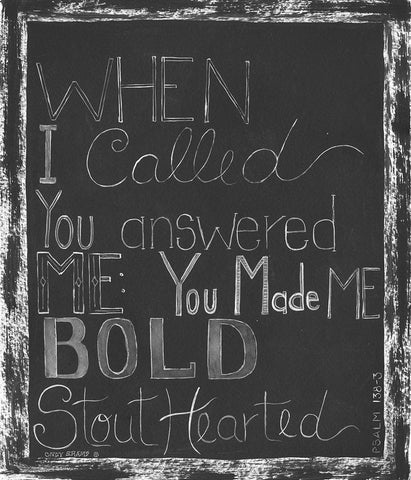 WHEN
I Called
You answered
ME: You Made ME
BOLD
Stout Hearted
PSALM 138-3
CINDY SHAMP